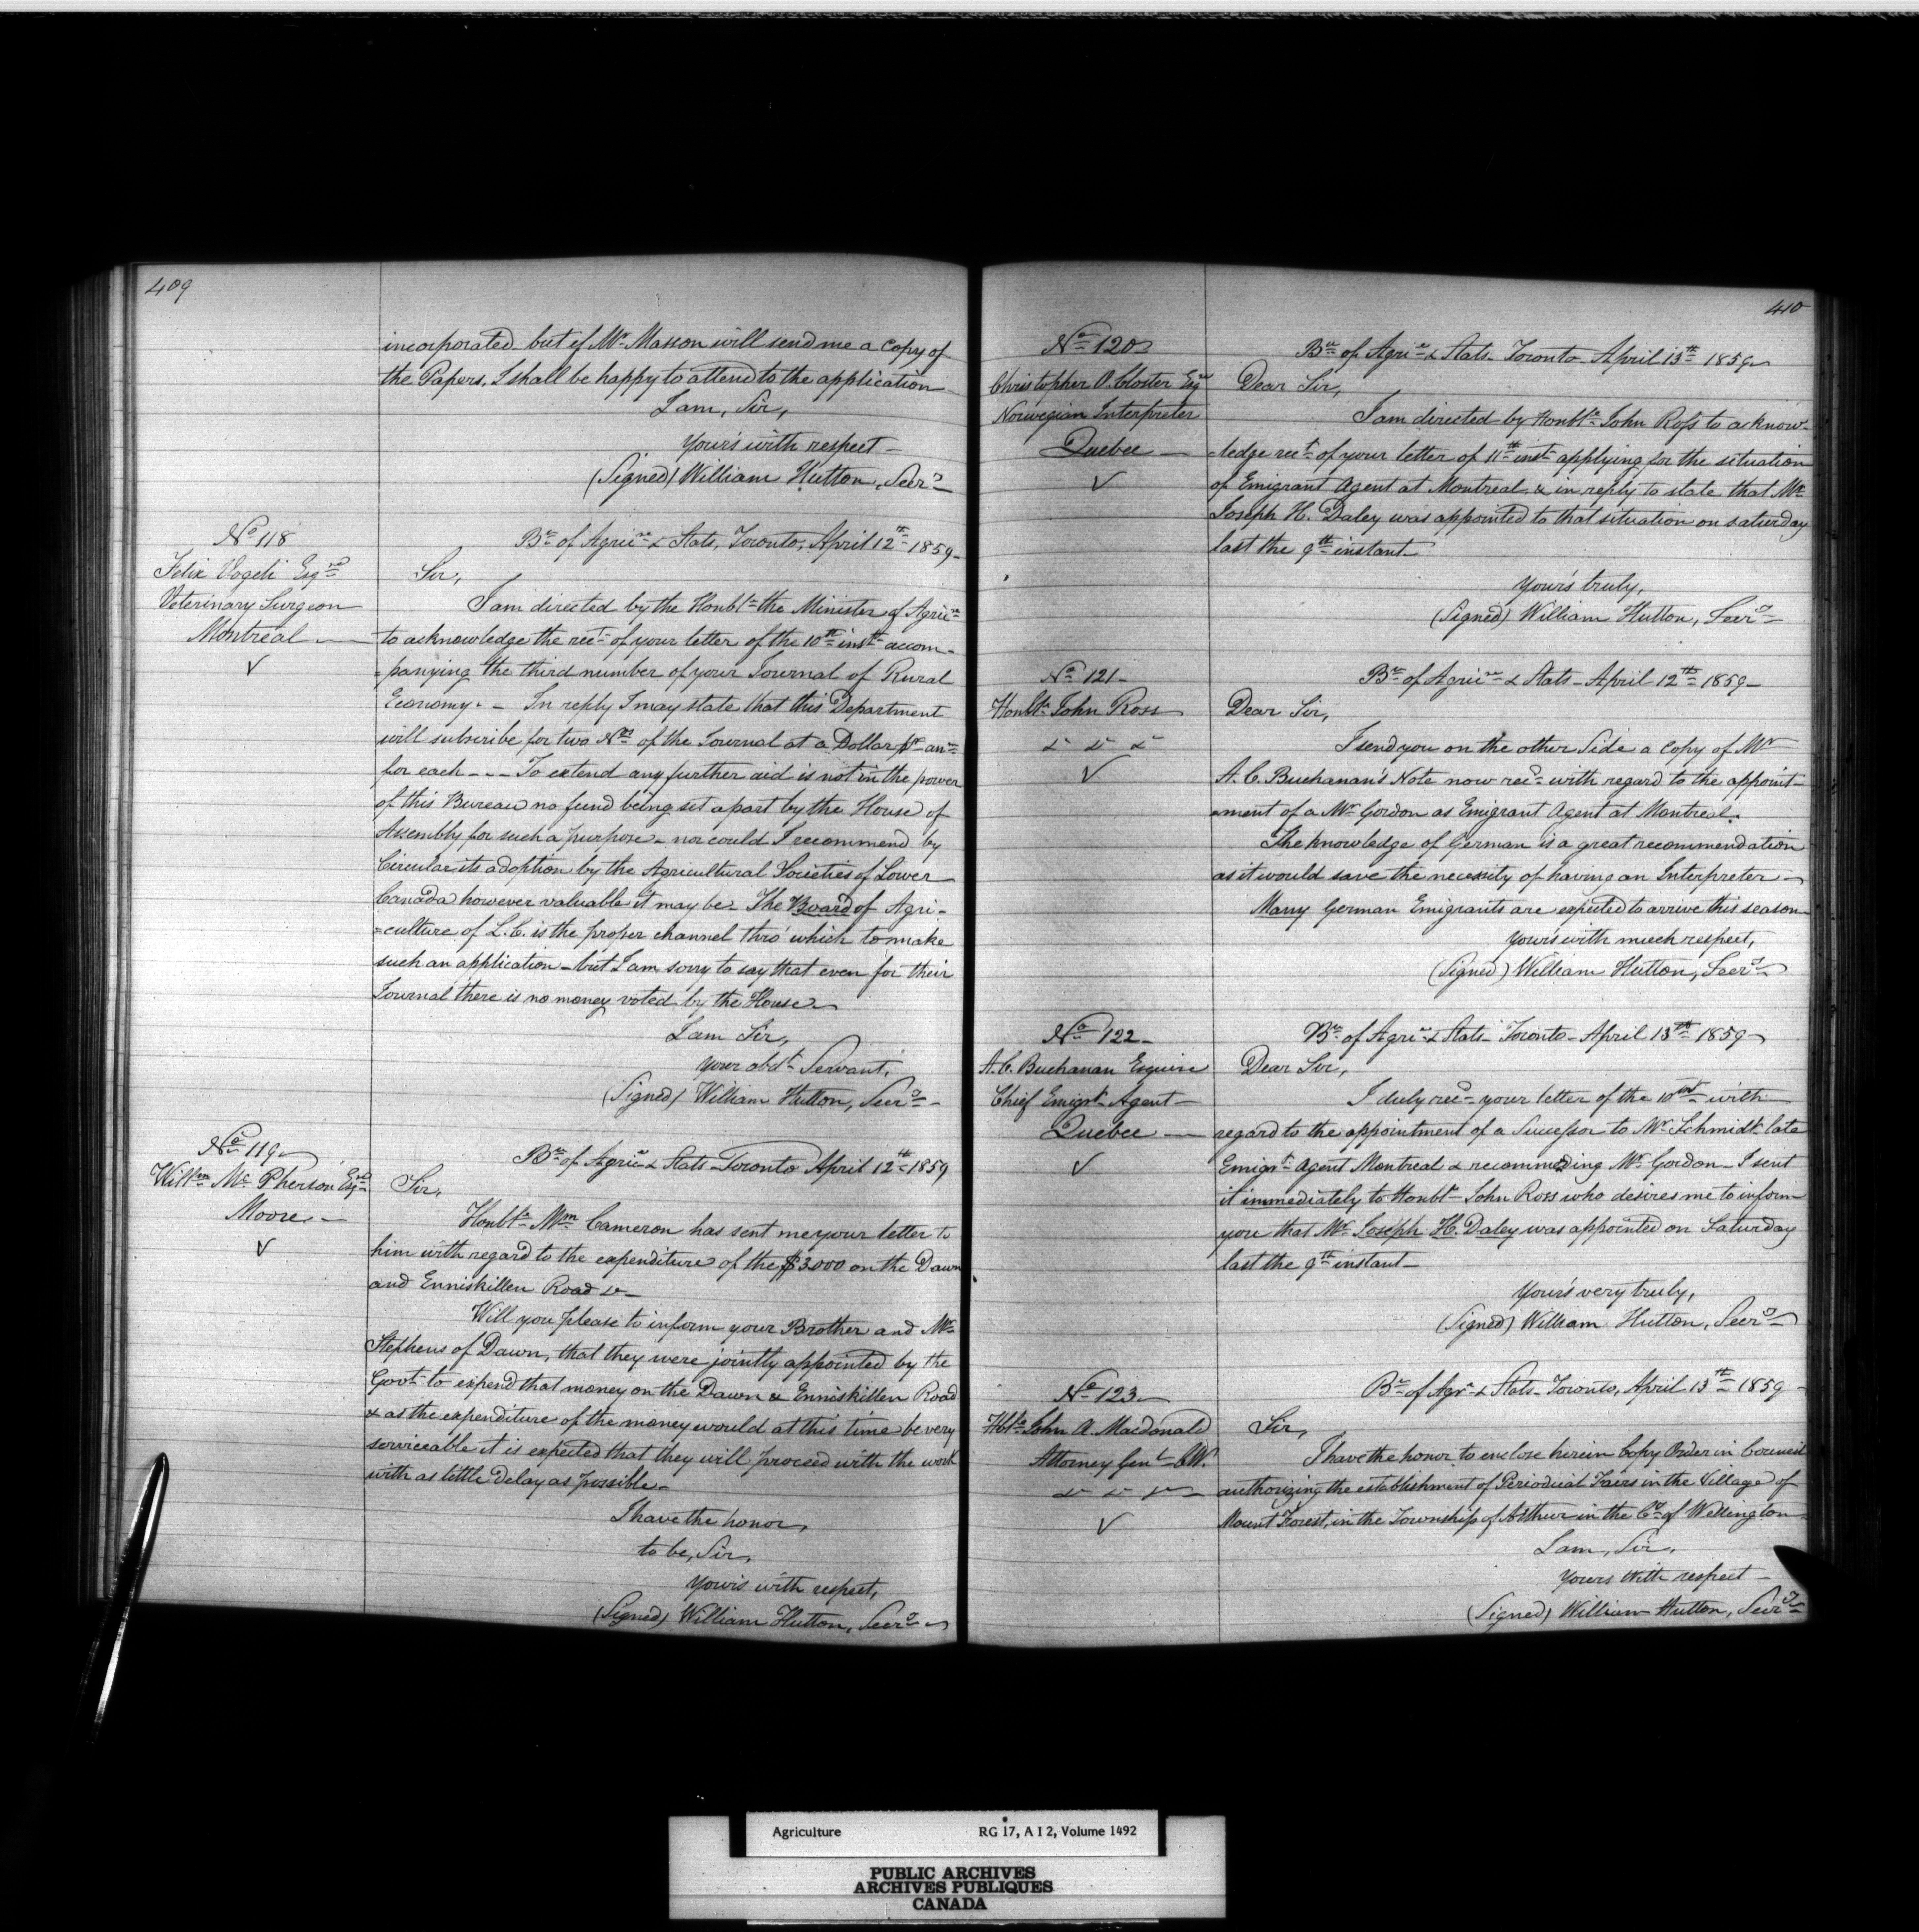 409
incorporated but if Mr. Masson will send me a copy of
the Papers, I shall be happy to attend to the application
I am, Sir,
Your's with respect –
(Signed) William Hutton, Secry
No 118
Felix Vogeli Esqre
Veterinary Surgeon
Montreal —
✓
Bu of Agrire & Stats, Toronto, April 12th 1859–
Sir,
I am directed by the Honble the Minister of Agrire
to acknowledge the rect of your letter of the 10th instt accom-
=panying the third number of your Journal of Rural
Economy. – In reply I may state that this Department
will subscribe for two Nos of the Journal at a Dollar pr anm
for each – – – To extend any further aid is not in the power
of this Bureau no fund being set apart by the House of
Assembly for such a purpose – nor could I recommend by
Circular its adoption by the Agricultural Societies of Lower
Canada however valuable it may be – The Board of Agri-
=culture of L.C. is the proper channel thro' which to make
such an application – but I am sorry to say that even for their
Journal there is no money voted by the House –
I am Sir,
Your obdt Servant,
(Signed) William Hutton, Secry –
No 119
Willm McPherson Esqre
Moore –
✓
Bu of Agrire & Stats – Toronto April 12th 1859
Sir,
Honble Wm Cameron has sent me your letter to
him with regard to the expenditure of the $3000 on the Dawn
and Enniskillen Road &c –
Will you please to inform your Brother and Mr
Stephens of Dawn, that they were jointly appointed by the
Govt to expend that money on the Dawn & Enniskillen Road
& as the expenditure of the money would at this time be very
serviceable it is expected that they will proceed with the work
with as little Delay as possible –
I have the honor,
to be, Sir,
Your's with respect,
(Signed) William Hutton, Secry –
410
No 120
Christopher O. Closter Esqr
Norwegian Interpreter
Quebec —
✓
Bu of Agrire & Stats – Toronto – April 13th 1859
Dear Sir,
I am directed by Honble John Ross to acknow-
-ledge rect of your letter of 11th inst applying for the situation
of Emigrant Agent at Montreal, & in reply to state that Mr
Joseph H. Daley was appointed to that situation on saturday
last the 9th instant
Your's truly,
(Signed) William Hutton, Secry
No 121 –
Honble John Ross
&c &c &c
✓
Bu of Agrire & Stats – April 12th 1859 –
Dear Sir,
I send you on the other Side a copy of Mr
A. C. Buchanan's Note now recd with regard to the appoint-
=ment of a Mr Gordon as Emigrant Agent at Montreal.
The knowledge of German is a great recommendation
as it would save the necessity of having an Interpreter –
Many German Emigrants are expected to arrive this season –
Your's with much respect,
(Signed) William Hutton, Secry
No 122 –
A. C. Buchanan Esquire
Chief Emigrt Agent –
Quebec —
✓
Bu of Agrire & Stats – Toronto – April 13th 1859
Dear Sir,
I duly recd your letter of the 10th inst with
regard to the appointment of a Successor to Mr Schmidt late
Emigrt Agent Montreal & recommending Mr Gordon – I sent
it immediately to Honble John Ross who desires me to inform
you that Mr Joseph H. Daley was appointed on Saturday
last the 9th instant –
Your's very truly,
(Signed) William Hutton, Secry
No 123 –
Hble John A. Macdonald
Attorney Genl C.W.
&c &c &c –
✓
Bu of Agre & Stats – Toronto, April 13th 1859 –
Sir,
I have the honor to enclose herein Copy Order in Council
authorizing the establishment of Periodical Fairs in the Village of
Mount Forest, in the Township of Arthur in the Co of Wellington
I am, Sir,
Yours With respect –
(Signed) William Hutton, Secry
Agriculture RG 17, A I 2, Volume 1492
PUBLIC ARCHIVES
ARCHIVES PUBLIQUES
CANADA